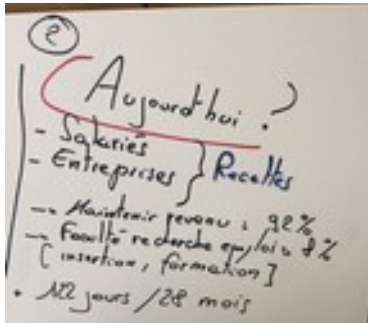 2
Aujourd'hui ?
- Salariés
- Entreprises } Recettes
→ Maintenir revenu : 92%
→ Faculté recherche emploi : 8%
[insertion, formation]
• 122 jours / 28 mois